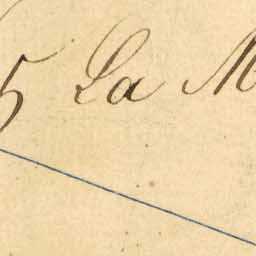 5 La M